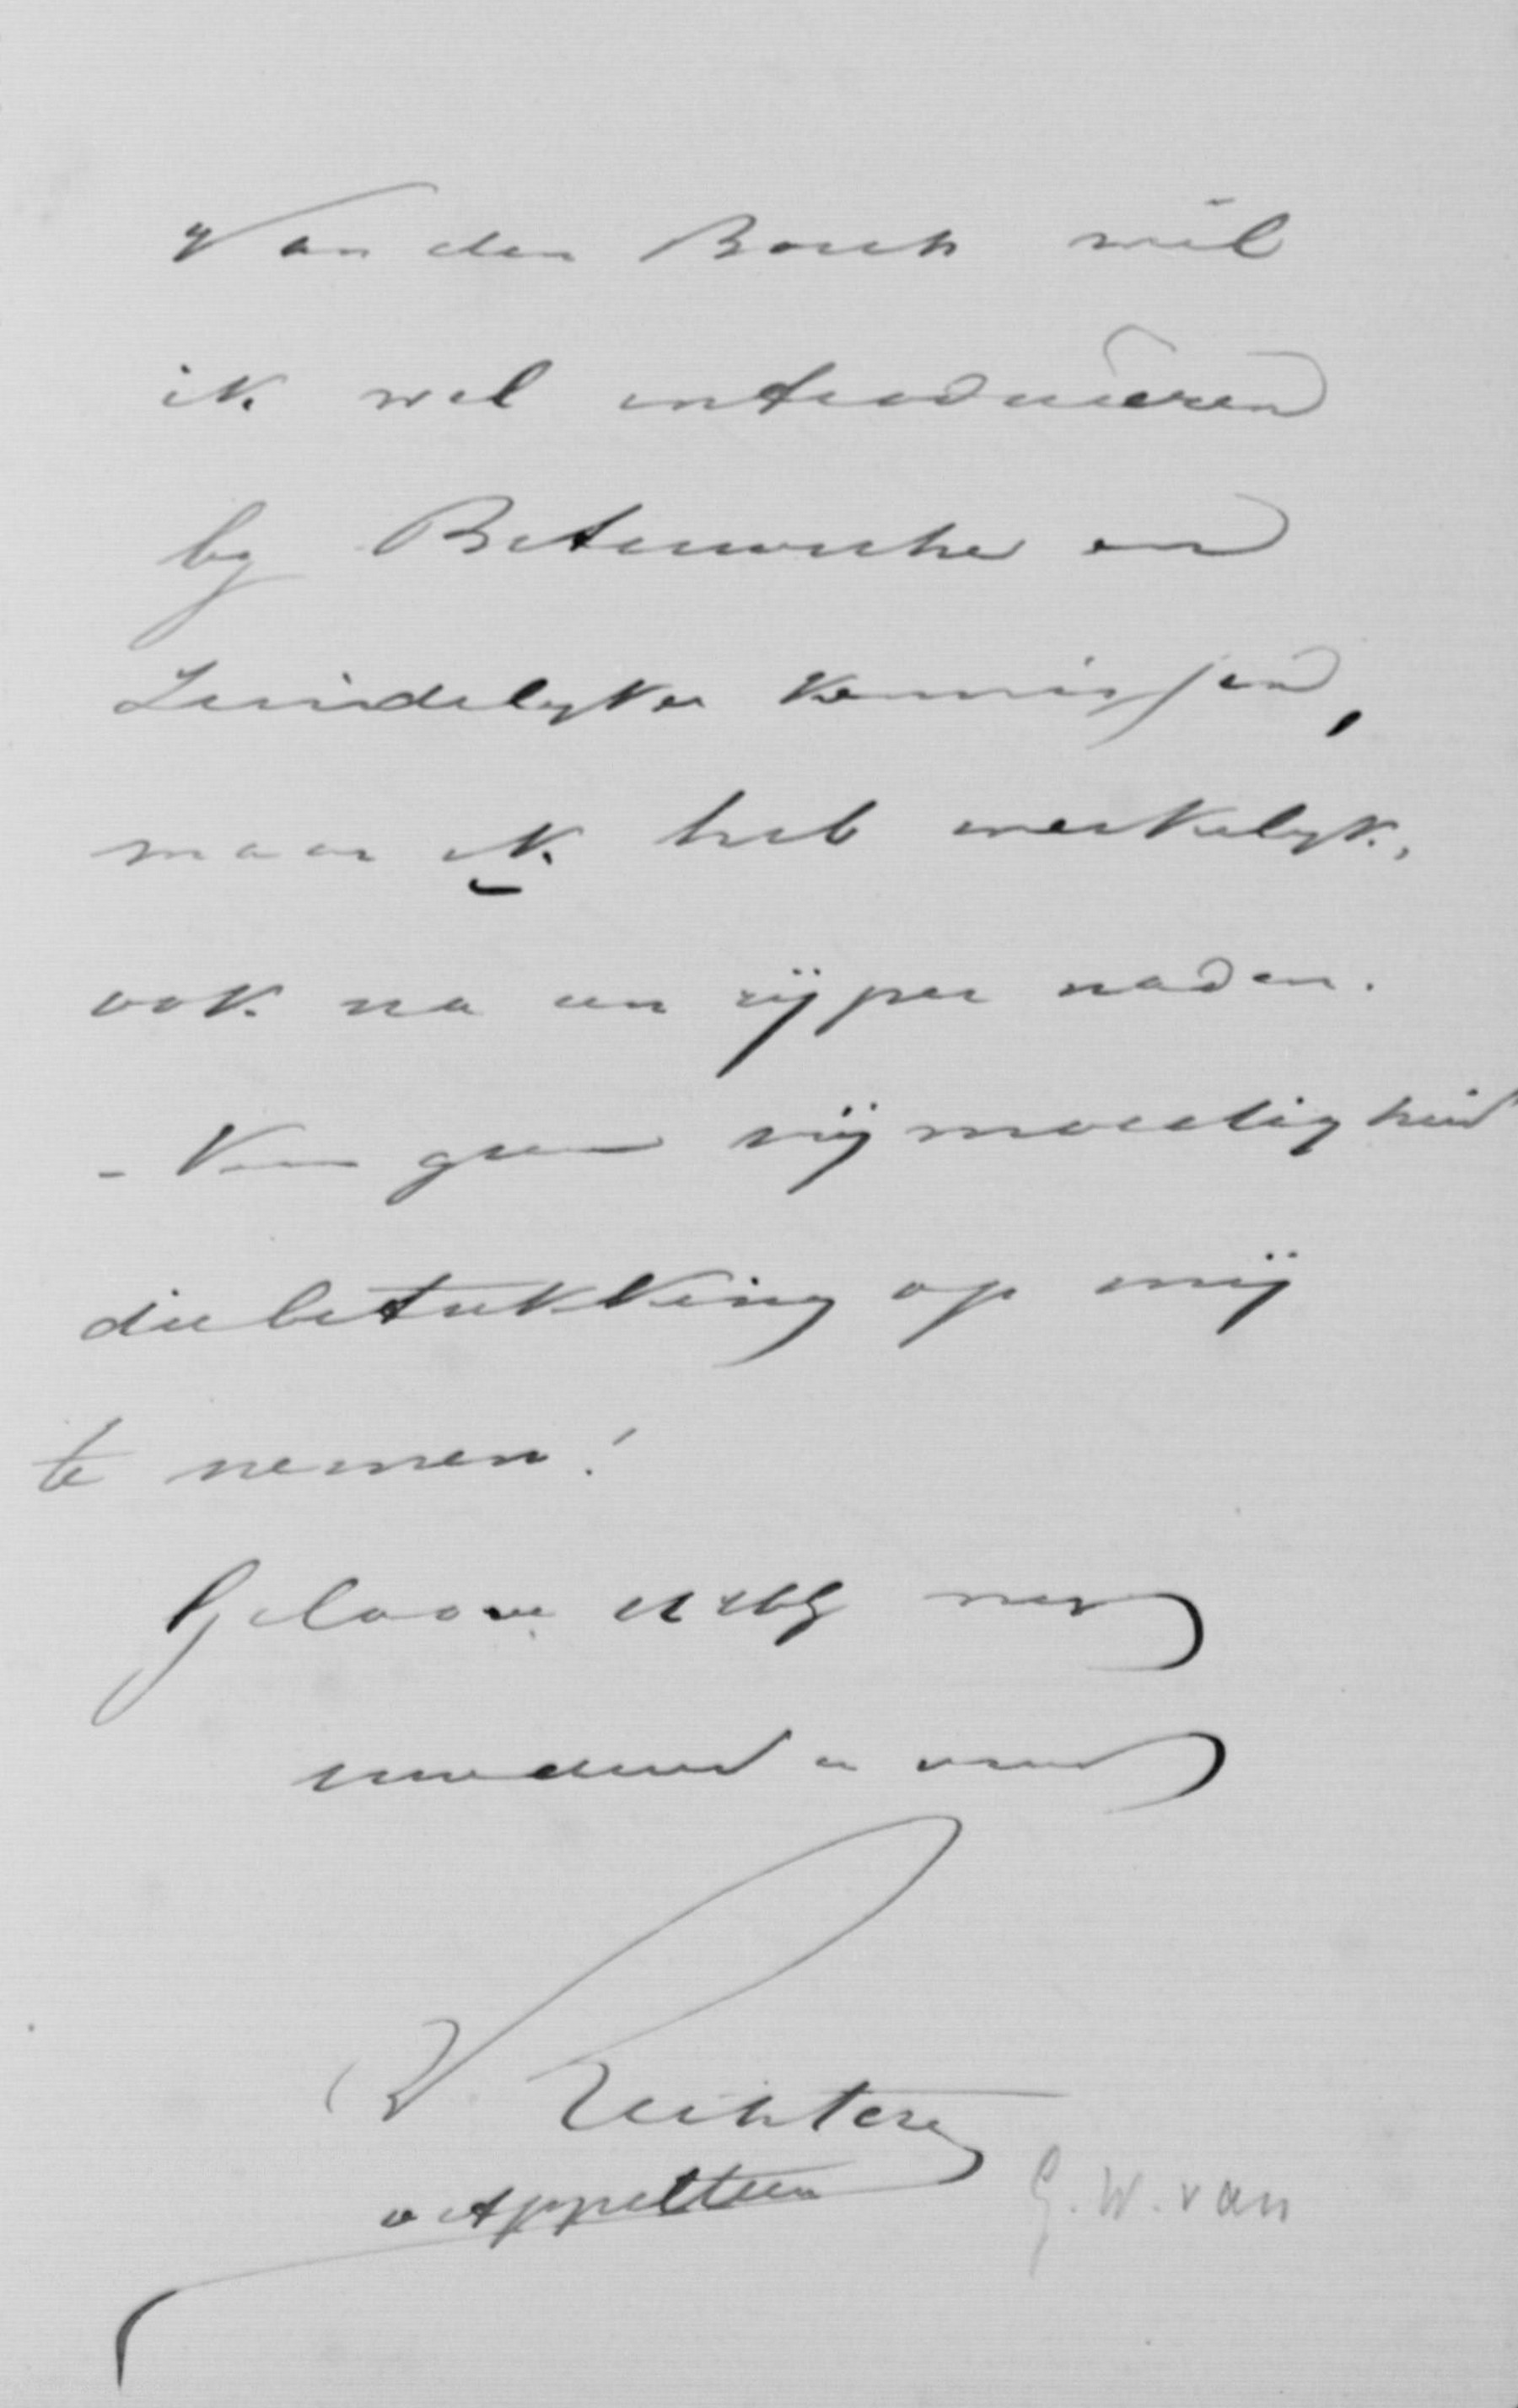 Van den Bosch wil
ik wel introduceeren
by Betuwsche en
Zuidelyke kennissen,
maar ik heb werkelyk,
ook na een rijper naden-
-ken geen vrijmoedigheid
die betrekking op mij
te nemen!
Geloove UHWG my
v Rechteren
v Appeltern
G. W. van